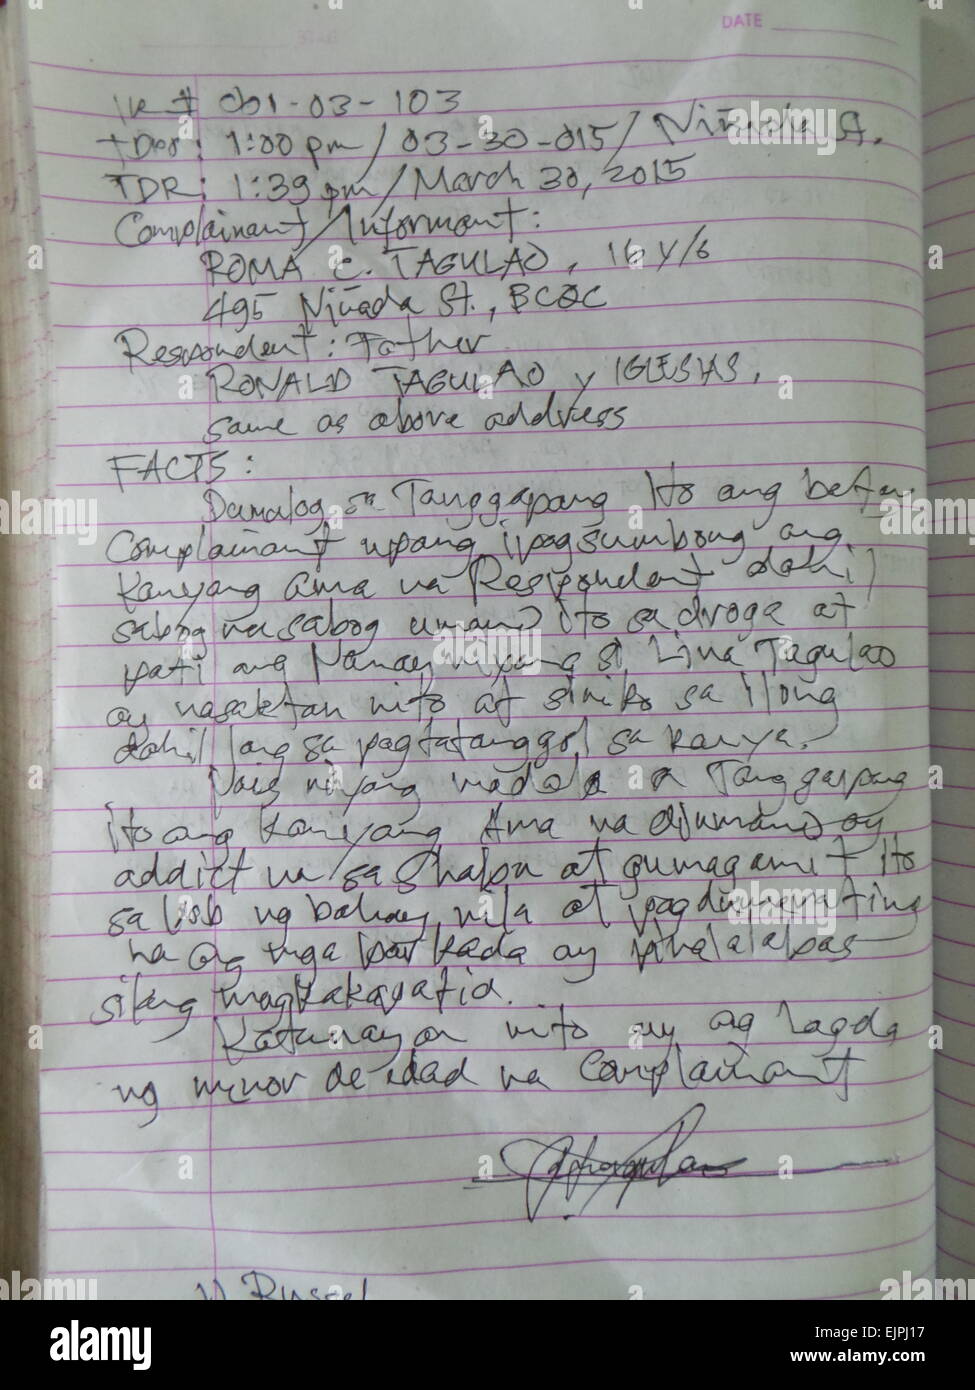 DATE
IR # 001-03-103
TDPO: 1:00 pm / 03-30-015 / Niñada St.
TDR: 1:39 pm / March 30, 2015
Complainant / Informant:
ROMA C. TAGULAO, 16 y/s
495 Niñada St., BCQC
Respondent: Father
RONALD TAGULAO y IGLESIAS,
same as above address
FACTS:
Dumulog sa Tanggapang Ito ang
Complainant upang ipagsumbong ang
Kanyang ama na Respondent dahil
sabog na sabog umano ito sa droga at
pati ang Nanay niyang si Lina Tagulao
ay nasaktan nito at siniko sa ilong
dahil lang sa pagtatanggol sa kanya.
Nais niyang madala sa Tanggapang
ito ang Kaniyang Ama na diumano ay
addict na sa Shabu at gumagamit Ito
sa loob ng bahay nila at pag dumarating
na ang mga barkada ay pinalalabas
silang magkakapatid.
Katunayan nito ay ang lagda
ng minor de edad na Complainant
alamy
Image ID: EJPJ17
www.alamy.com